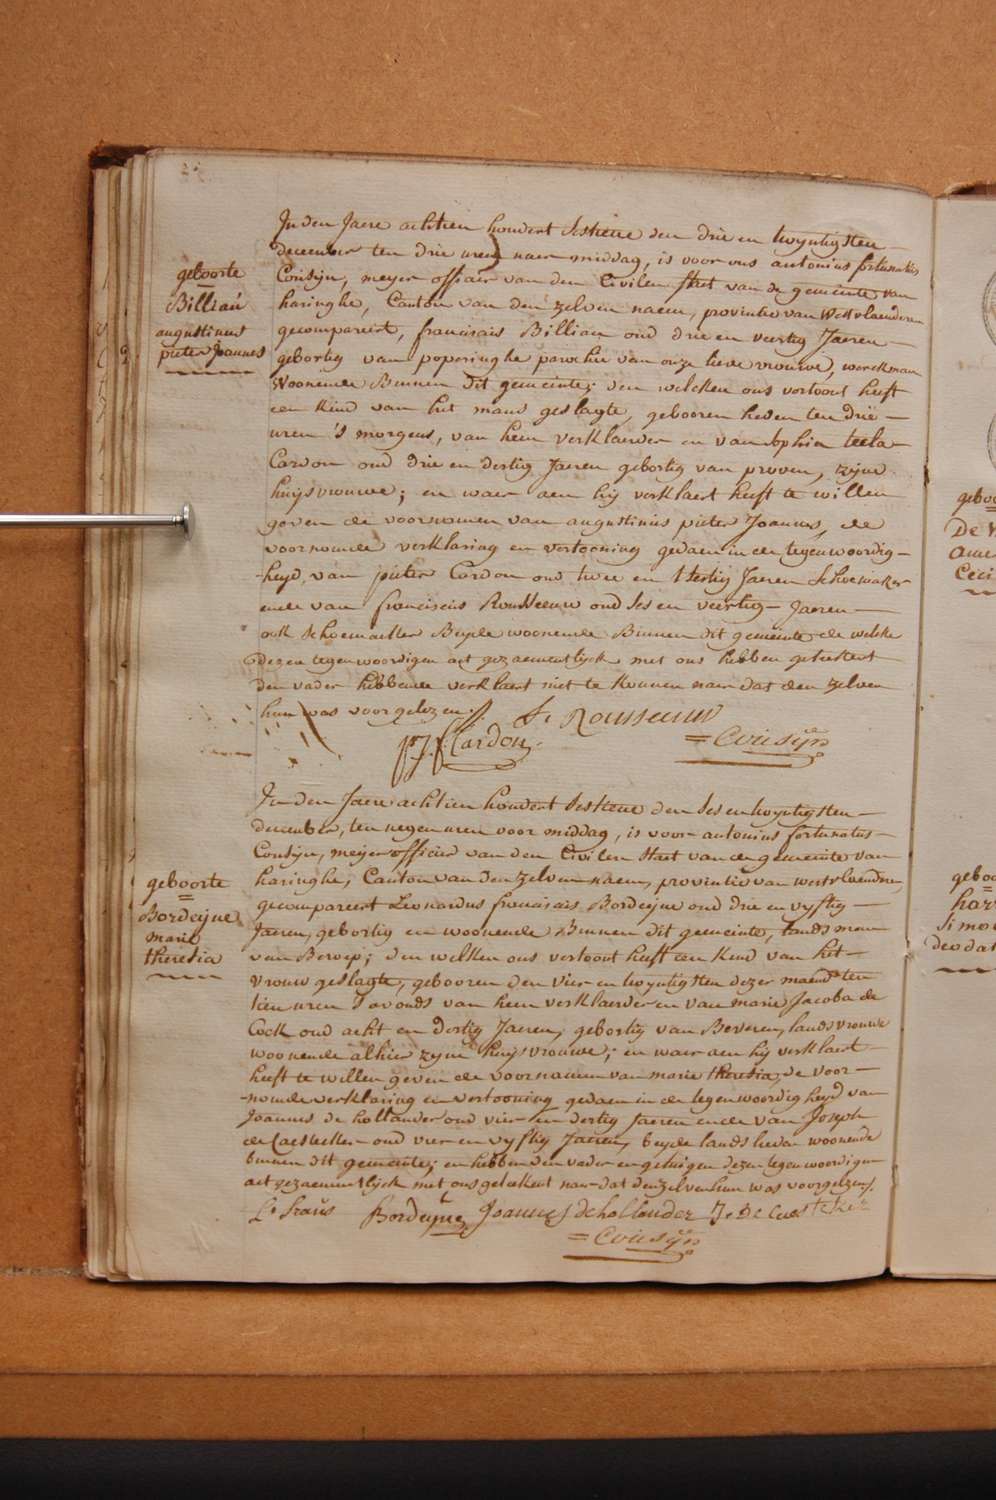 geboorte
Billiau
augustinus
pieter Joannes
In den Jaere achtien hondert sestiene den drie en twyntigsten
december ten drie uren naer middag, is voor ons antonius fortunatus
Cousyn, meyer officier van den Civilen staet van de gemeente van
haringhe, Canton van den zelven naem, provintie van Westvlaenderen
gecompareert, franciscus Billiau oud drie en veertig Jaeren
gebortig van poperinghe parochie van onze lieve vrouwe, werckman
Woonende Binnen dit gemeinte; den welcken ons vertoont heeft
een kind van het mans geslagte, gebooren heden ten drie
uren 's morgens, van hem verklaerder en van Sophia tecla
Cardon oud drie en dertig Jaeren gebortig van proven, zyne
huysvrouwe; en waer aen hy verklaert heeft te willen
geven de voornomen van augustinus pieter Joannes, de
voornomde verklaring en vertooning gedaen in de tegenwoordig-
-heyd, van pieter Cordon oud twee en Jaeren Schoemaker
ende van franciscus Rousseeuw oud ses en veertig Jaeren
ook schoemaeker Beyde woonende Binnen dit gemeente de welke
dezen tegenwoordigen act gezaementlyck met ons hebben geteekent
den vader hebbende verklaert niet te konnen naer dat den zelven
hun was voorgelezen.
f. Rousseeuw
p. J. Cardon
= Cousyn
geboorte
Bordeyne
marie
theresia
In den Jaere achtien hondert sestiene den ses en twyntigsten
december, ten negen uren voor middag, is voor antonius fortunatus
Cousyn, meyer officier van den Civilen staet van de gemeente van
haringhe, Canton van den zelven naem, provintie van westvlaendren,
gecompareert Leonardus franciscus Bordeyne oud drie en vyftig
Jaeren, gebortig en woonende Binnen dit gemeinte, landsman
van Beroep; den welken ons vertoont heeft een kind van het
vrouw geslagte, gebooren den vier en twyntigsten dezer maend ten
tien uren 's avonds van hem verklaerder en van marie Jacoba de
Cock oud acht en dertig Jaeren, gebortig van Beveren, landsvrouwe
woonende alhier zyne huysvrouwe; en waer aen hy verklaert
heeft te willen geven de voornamen van marie theresia, de voor-
-nomde verklaring en vertooning gedaen in de tegenwoordigheyd van
Joannes de hollander oud vier en dertig Jaeren ende van Joseph
de Caestecker oud vier en vyftig Jaeren, beyde landslieden woonende
binnen dit gemeente; en hebben den vader en getuigen dezen tegenwoordigen
act gezaementlyck met ons geteekent naer dat den zelven hun was voorgelezen.
Bordeyne Joannes de hollander J. De Caesteker
= Cousyn